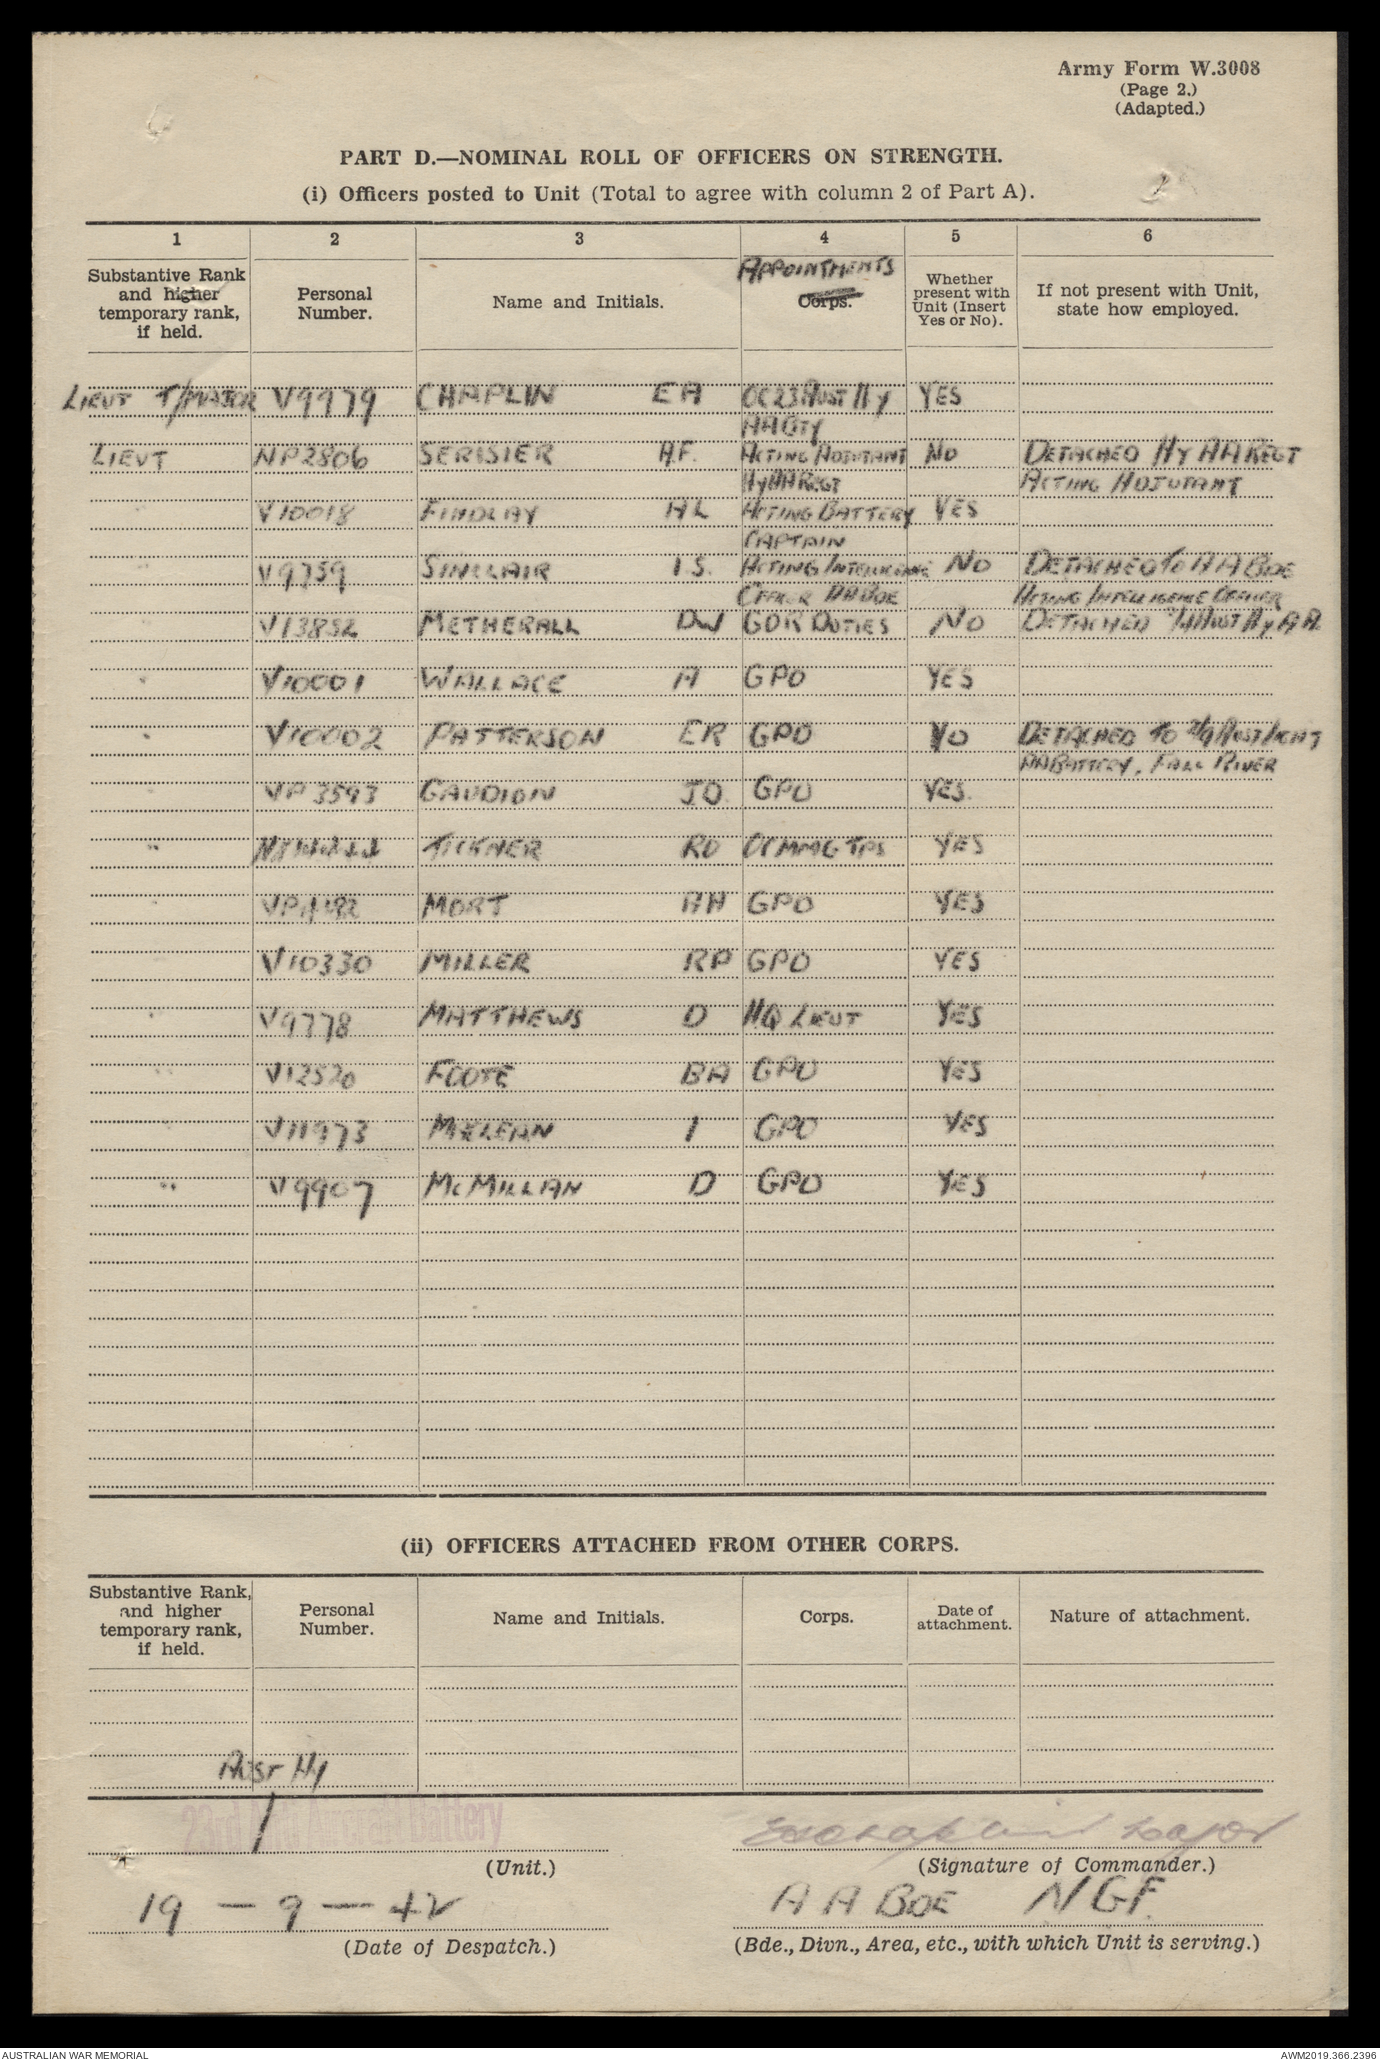 Army Form W.3008
(Page 2.)
(Adapted.)
PART D.—NOMINAL ROLL OF OFFICERS ON STRENGTH.
(i) Officers posted to Unit (Total to agree with column 2 of Part A).
1 2 3 4 5 6
Substantive Rank and higher temporary rank, if held.
Personal Number.
Name and Initials.
APPOINTMENTS
Corps.
Whether present with Unit (Insert Yes or No).
If not present with Unit, state how employed.
LIEUT T/MAJOR V9979 CHAPLIN EA OC 23 AUST Hy YES
AA BTY
LIEUT NP2806 SERISIER A.F. ACTING ADJUTANT NO DETACHED Hy AA REGT
Hy AA REGT ACTING ADJUTANT
" V10018 FINDLAY AL ACTING BATTERY YES
CAPTAIN
" V9759 SINCLAIR I S. ACTING INTELLIGENCE NO DETACHED TO AA BDE
OFFICER AA BDE ACTING INTELLIGENCE OFFICER
" V13852 METHERALL DW GOR DUTIES NO DETACHED AUST Hy AA
" V10001 WALLACE A GPO YES
" V10002 PATTERSON ER GPO NO DETACHED TO 2/9 AUST LIGHT
AA BATTERY, FALL RIVER
" VP3593 GAUDION JO. GPO YES.
" TICKNER RO OC MMG TPS YES
" MORT AH GPO YES
" V10330 MILLER RP GPO YES
" V9778 MATTHEWS D HQ LIEUT YES
" V12520 FOOTE BA GPO YES
" V11973 McLEAN I GPO YES
" V9907 McMILLAN D GPO YES
(ii) OFFICERS ATTACHED FROM OTHER CORPS.
Substantive Rank, and higher temporary rank, if held.
Personal Number.
Name and Initials.
Corps.
Date of attachment.
Nature of attachment.
AUST Hy
23rd Anti Aircraft Battery
(Unit.)
EA Chaplin Major
(Signature of Commander.)
19 — 9 — 42
(Date of Despatch.)
A A BDE NGF.
(Bde., Divn., Area, etc., with which Unit is serving.)
AUSTRALIAN WAR MEMORIAL
AWM2019.366.2396